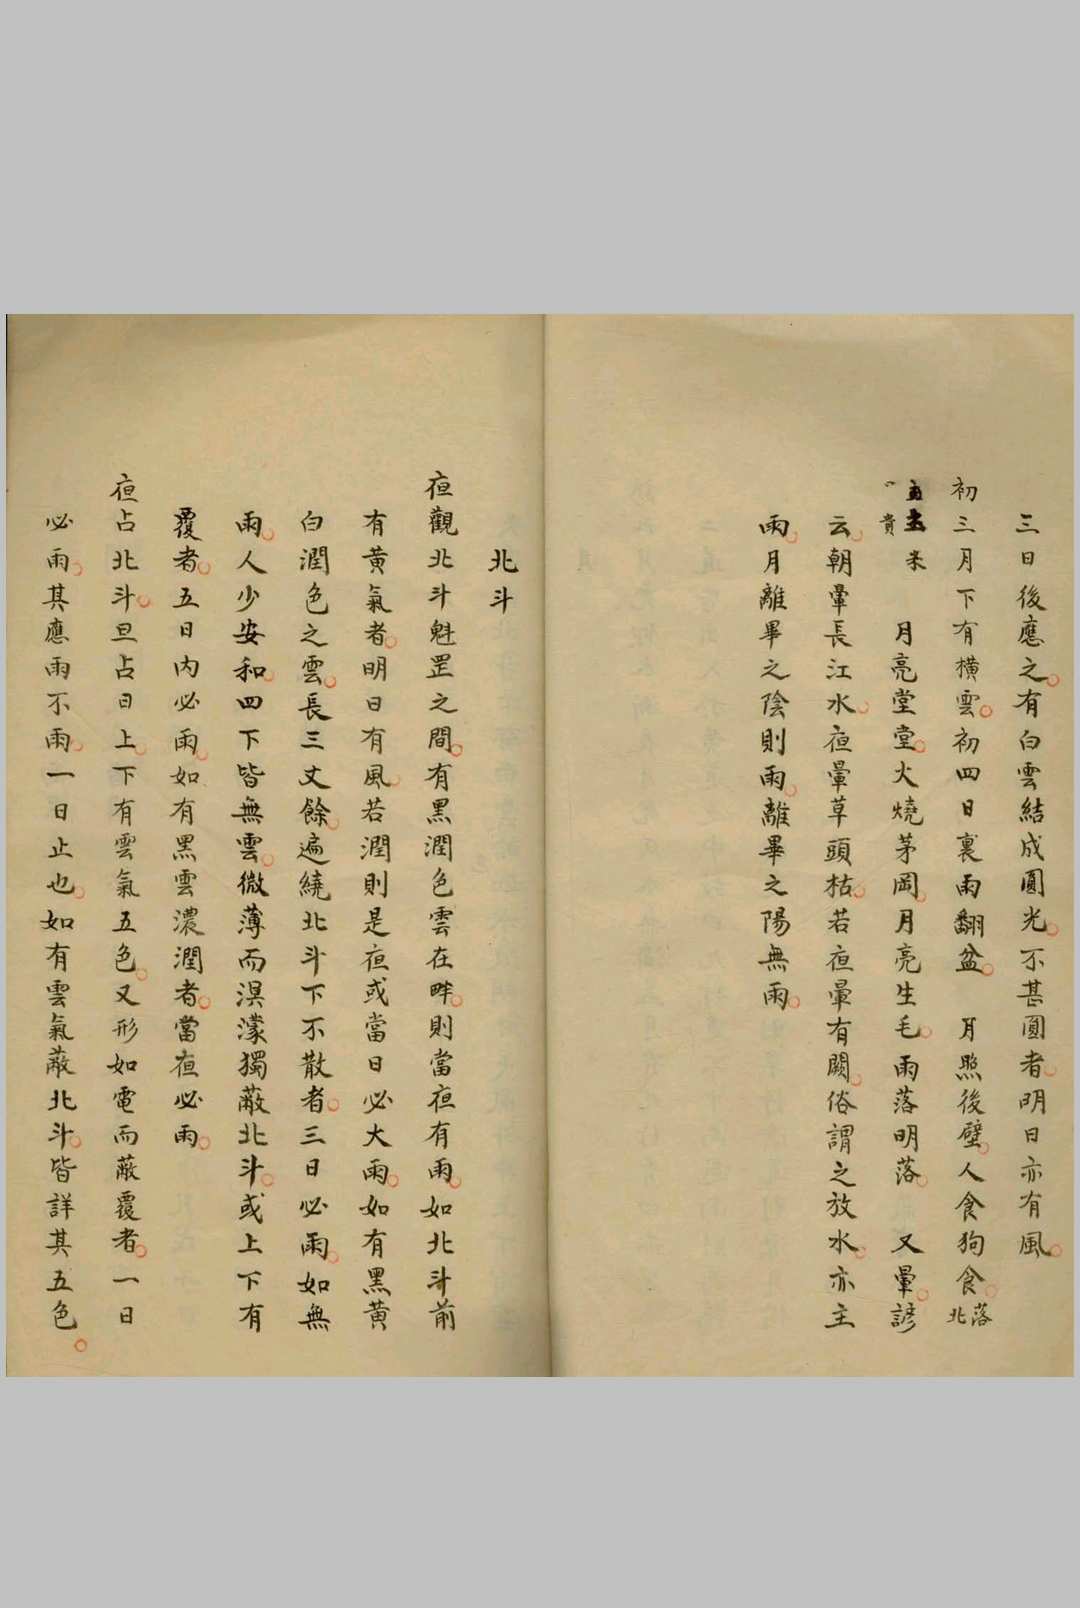 三日後應之有白雲結成圓光不甚圓者明日亦有風
初三月下有橫雲初四日裏雨翻盆　月照後壁人食狗食落北
主米貴　月亮堂堂火燒茅岡月亮生毛雨落明落又暈諺
云朝暈長江水夜暈草頭枯若夜暈有闕俗謂之放水亦主
雨月離畢之陰則雨離畢之陽無雨
北斗
夜觀北斗魁罡之間有黑潤色雲在畔則當夜有雨如北斗前
有黃氣者明日有風若潤則是夜或當日必大雨如有黑黃
白潤色之雲長三丈餘遍繞北斗下不散者三日必雨如無
雨人少安和四下皆無雲微薄而溟濛獨蔽北斗或上下有
覆者五日內必雨如有黑雲濃潤者當夜必雨
夜占北斗旦占日上下有雲氣五色又形如電而蔽覆者一日
必雨其應雨不雨一日止也如有雲氣蔽北斗皆詳其五色